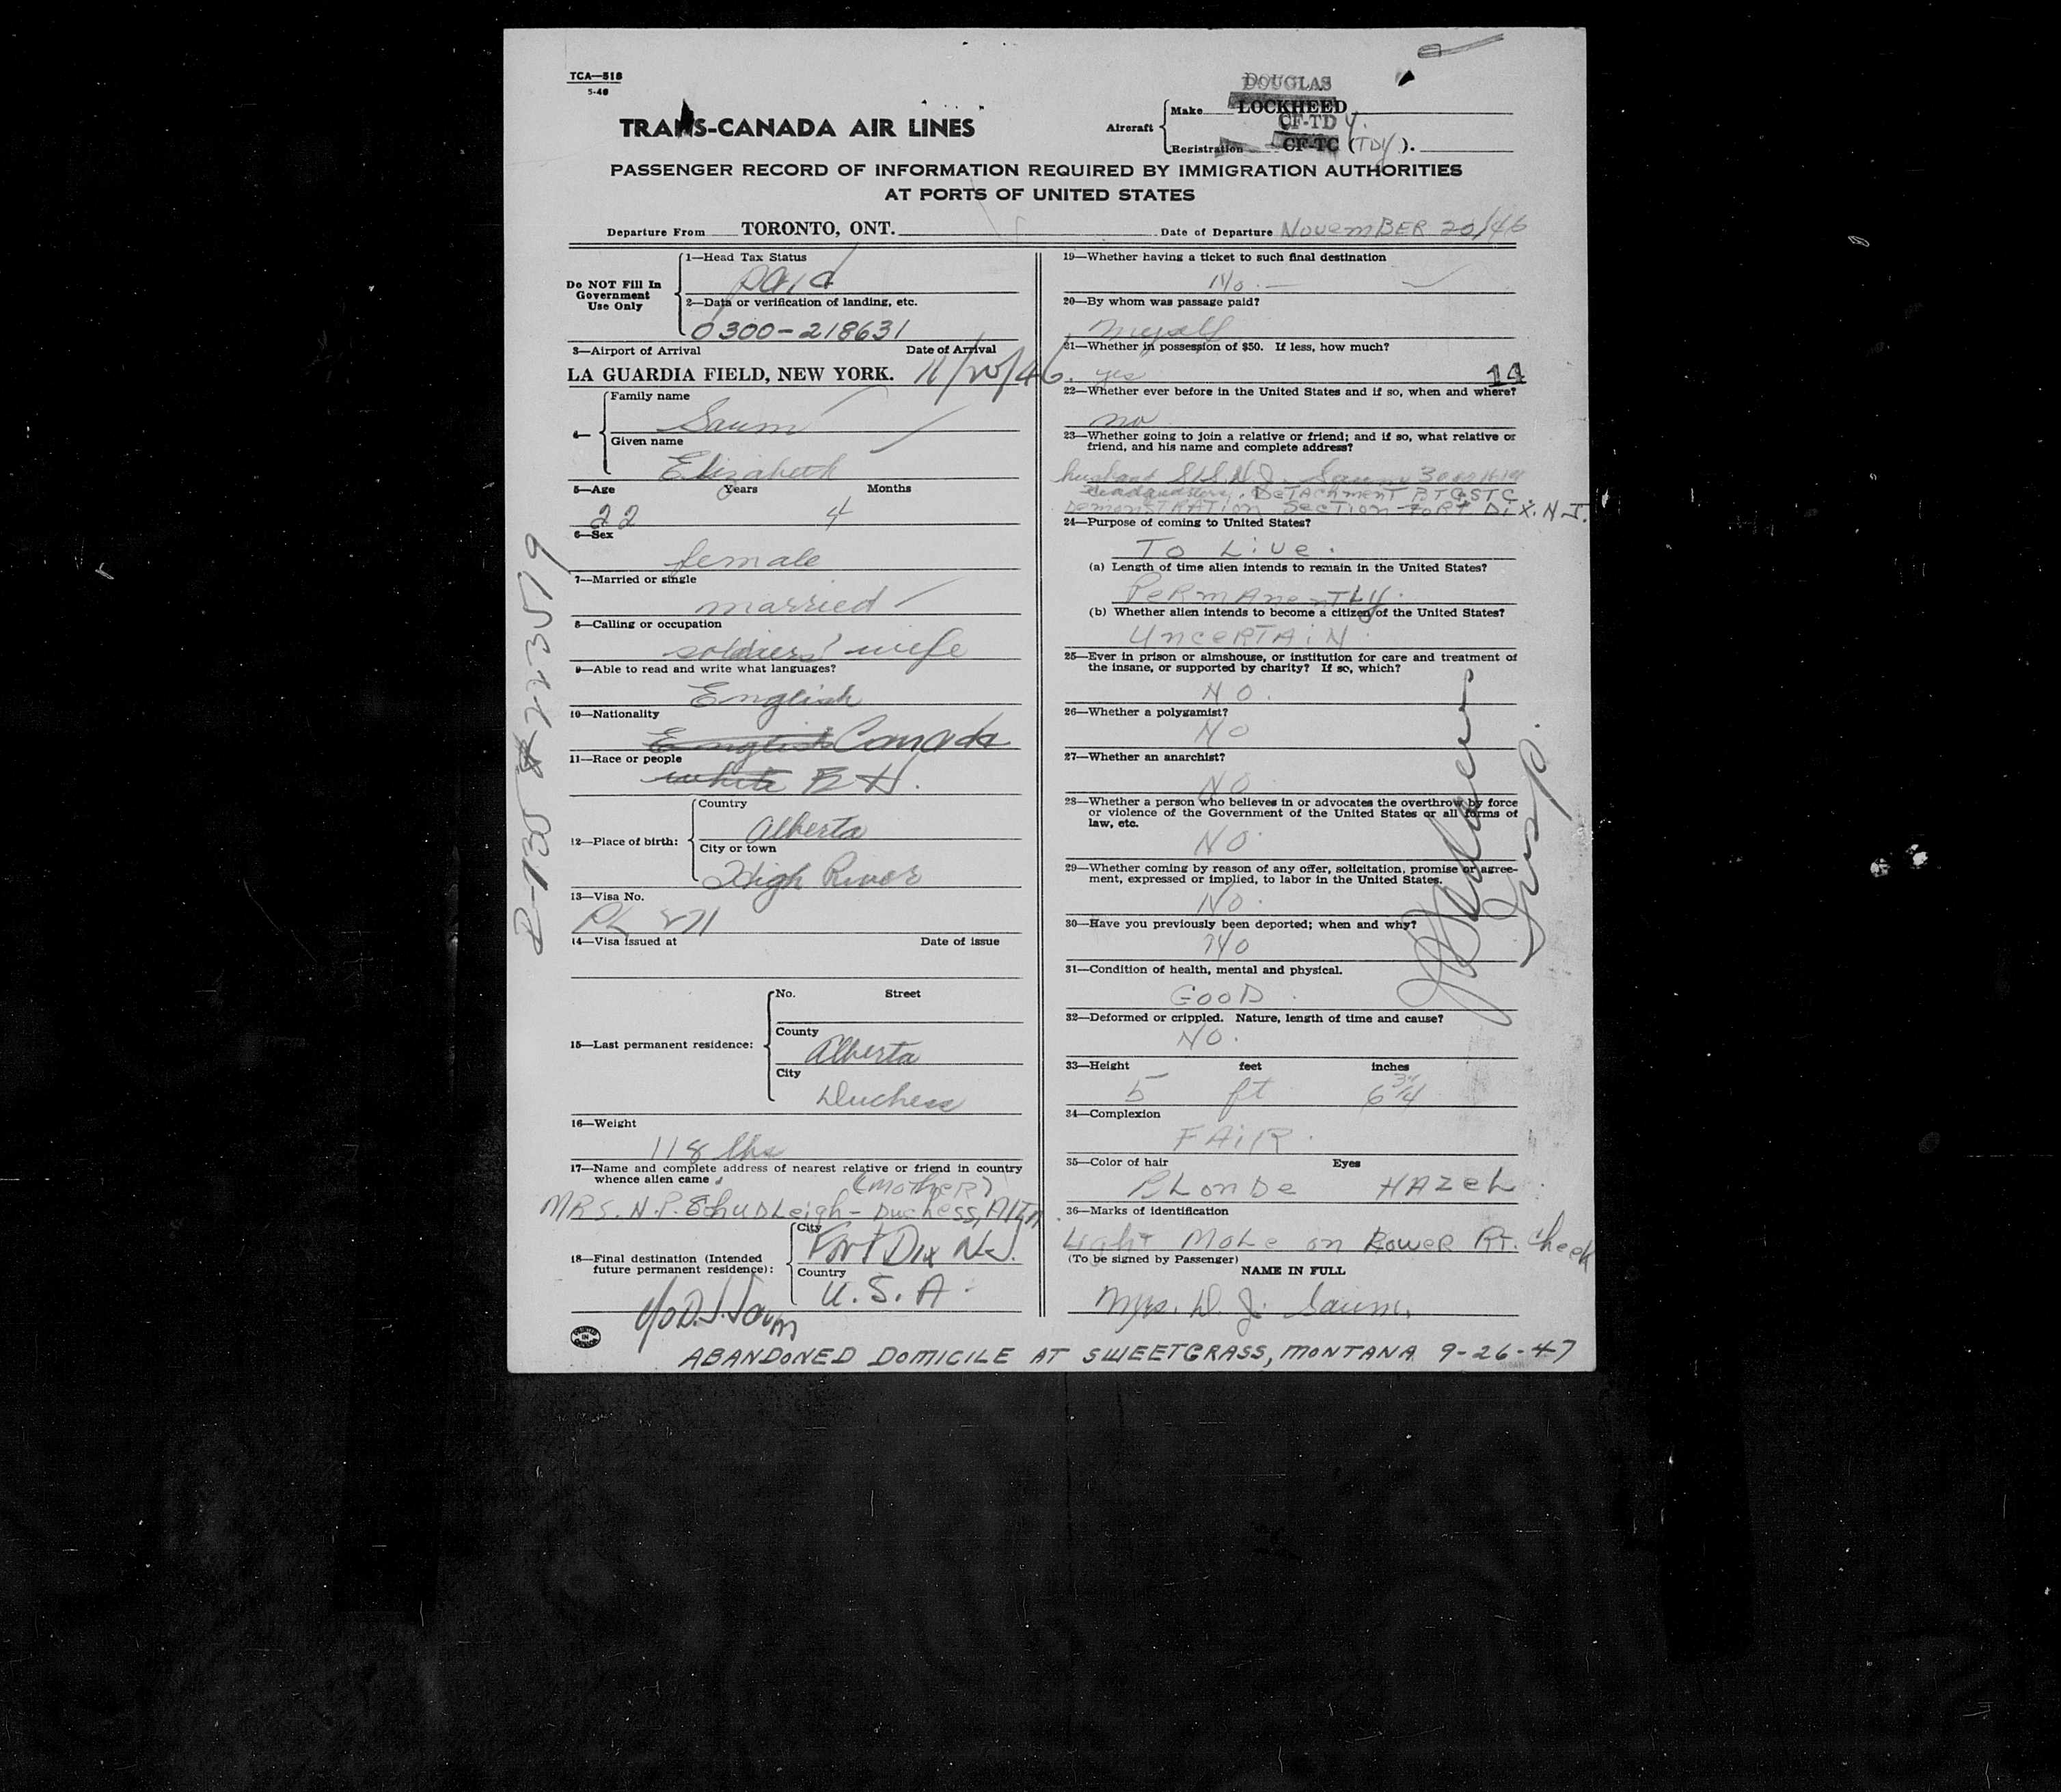 TCA—518
5-46
DOUGLAS
Make LOCKHEED
CF-TD Y.
TRANS-CANADA AIR LINES
Aircraft
Registration CF-TC (TDY).
PASSENGER RECORD OF INFORMATION REQUIRED BY IMMIGRATION AUTHORITIES
AT PORTS OF UNITED STATES
Departure From TORONTO, ONT. Date of Departure NOVEMBER 20/46
Do NOT Fill In
Government
Use Only
1—Head Tax Status
paid
2—Data or verification of landing, etc.
0300-218631
3—Airport of Arrival Date of Arrival
LA GUARDIA FIELD, NEW YORK. 11/20/46.
4—
Family name
Saum
Given name
Elizabeth
5—Age Years Months
22 4
6—Sex
female
7—Married or single
married
8—Calling or occupation
soldiers' wife
9—Able to read and write what languages?
English
10—Nationality
English Canada
11—Race or people
white
12—Place of birth:
Country
Alberta
City or town
High River
13—Visa No.
14—Visa issued at Date of issue
15—Last permanent residence:
No. Street
County
Alberta
City
Duchess
16—Weight
118 lbs
17—Name and complete address of nearest relative or friend in country
whence alien came
(MOTHER)
MRS. N.P. ChuDLeigh - Duchess, Alta.
18—Final destination (Intended
future permanent residence):
City
Fort Dix N.J.
Country
U.S.A.
c/o D.J. Saum
PRINTED IN CANADA
19—Whether having a ticket to such final destination
No.
20—By whom was passage paid?
Myself
21—Whether in possession of $50. If less, how much?
yes 14
22—Whether ever before in the United States and if so, when and where?
no
23—Whether going to join a relative or friend; and if so, what relative or
friend, and his name and complete address?
husband Saum
Headquarters, DeTAchmenT
DemonsTRATion SecTion - FoRT DiX. N.J.
24—Purpose of coming to United States?
To Live.
(a) Length of time alien intends to remain in the United States?
PeRmAnenTLy.
(b) Whether alien intends to become a citizen of the United States?
UnceRTAiN.
25—Ever in prison or almshouse, or institution for care and treatment of
the insane, or supported by charity? If so, which?
NO.
26—Whether a polygamist?
NO
27—Whether an anarchist?
NO
28—Whether a person who believes in or advocates the overthrow by force
or violence of the Government of the United States or all forms of
law, etc.
NO.
29—Whether coming by reason of any offer, solicitation, promise or agree-
ment, expressed or implied, to labor in the United States.
NO.
30—Have you previously been deported; when and why?
NO
31—Condition of health, mental and physical.
GOOD.
32—Deformed or crippled. Nature, length of time and cause?
NO.
33—Height feet inches
5 ft 6 3/4
34—Complexion
FAiR.
35—Color of hair Eyes
BLonDe HAZeL.
36—Marks of identification
Light MoLe on Lower RT. Cheek
(To be signed by Passenger)
NAME IN FULL
Mrs. D. J. Saum.
Insp.
ABANDONED DOMICILE AT SWEETGRASS, MONTANA 9-26-47